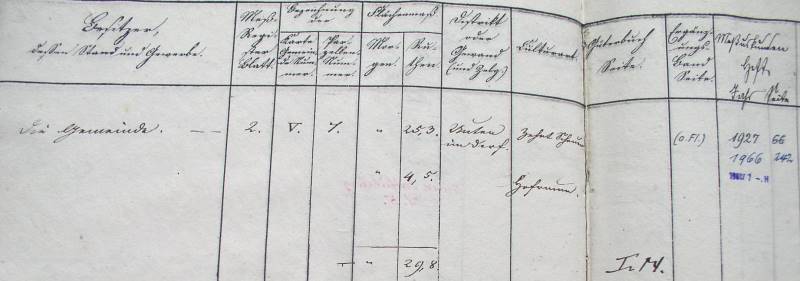 Besitzer,
dessen Stand und Gewerbe.
Meß-
Regi-
ster
Blatt.
Bezeichnung
der
Karte
Gemein-
de Num-
mer.
Par-
zellen-
Num-
mer.
Flächenmaß
Mor-
gen.
Ru-
then.
Distrikt
oder
Gewand
(und Zelg.)
Culturart.
Güterbuch
Seite.
Ergänz-
ungs-
Band
Seite.
Meßurkunden
Heft
Jahr Seite
Die Gemeinde. — — 2. V. 1. " 25,3. Unten Zehnt Scheuer (o.Fl.) 1927 66
im Dorf. 1966 242
" 4,5. Hofraum.
— " 29,8. I. 14.